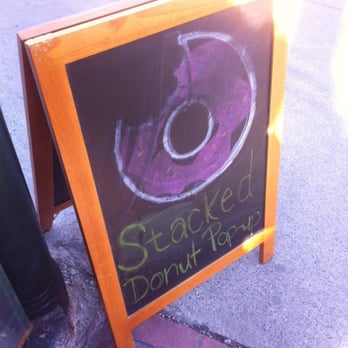 Stacked
Donut Pop-up